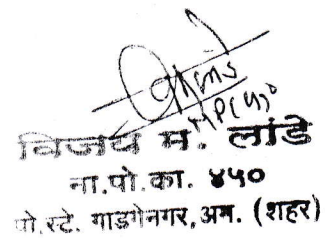 विजय म. लांडे
ना.पो.का. ४५०
पो.स्टे. गाडगेनगर, अम. (शहर)